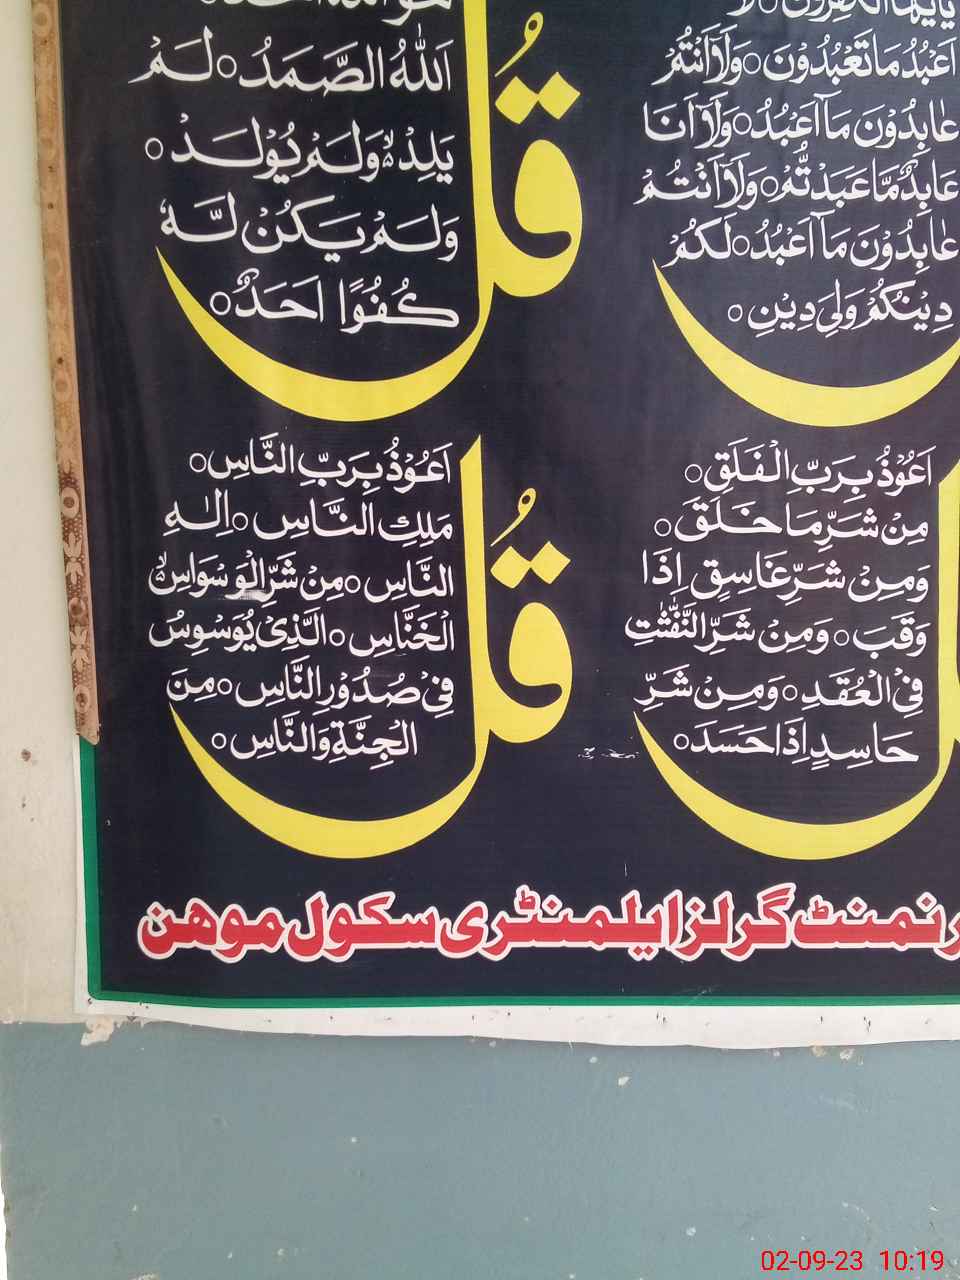 یٰۤاَیُّهَا الْكٰفِرُوْنَ لَاۤ
اَعْبُدُ مَا تَعْبُدُوْنَ وَلَاۤ اَنْتُمْ
عٰبِدُوْنَ مَاۤ اَعْبُدُ وَلَاۤ اَنَا
عَابِدٌ مَّا عَبَدْتُّمْ وَلَاۤ اَنْتُمْ
عٰبِدُوْنَ مَاۤ اَعْبُدُ لَكُمْ
دِیْنُكُمْ وَلِیَ دِیْنِ
قُل
هُوَ اللّٰهُ اَحَدٌ
اَللّٰهُ الصَّمَدُ لَمْ
یَلِدْ وَلَمْ یُوْلَدْ
وَلَمْ یَكُنْ لَّهٗ
كُفُوًا اَحَدٌ
اَعُوْذُ بِرَبِّ الْفَلَقِ
مِنْ شَرِّ مَا خَلَقَ
وَمِنْ شَرِّ غَاسِقٍ اِذَا
وَقَبَ وَمِنْ شَرِّ النَّفّٰثٰتِ
فِی الْعُقَدِ وَمِنْ شَرِّ
حَاسِدٍ اِذَا حَسَدَ
قُل
اَعُوْذُ بِرَبِّ النَّاسِ
مَلِكِ النَّاسِ اِلٰهِ
النَّاسِ مِنْ شَرِّ الْوَسْوَاسِ
الْخَنَّاسِ الَّذِیْ یُوَسْوِسُ
فِیْ صُدُوْرِ النَّاسِ مِنَ
الْجِنَّةِ وَالنَّاسِ
رنمنٹ گرلز ایلمنٹری سکول موهن
02-09-23 10:19